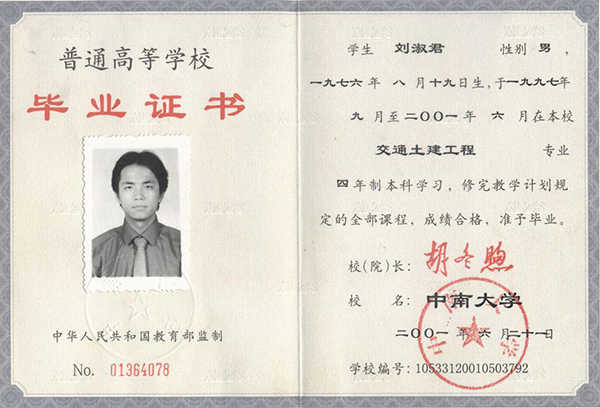 普通高等学校
毕业证书
中华人民共和国教育部监制
No. 01364078
学生 刘淑君 性别 男，
一九七六年 八月十九日生，于一九九七年
九月至二〇〇一年 六月在本校
交通土建工程 专业
四年制本科学习，修完教学计划规
定的全部课程，成绩合格，准予毕业。
校(院)长： 胡冬煦
校 名： 中南大学
二〇〇一年六月二十一日
学校编号：10533120010503792